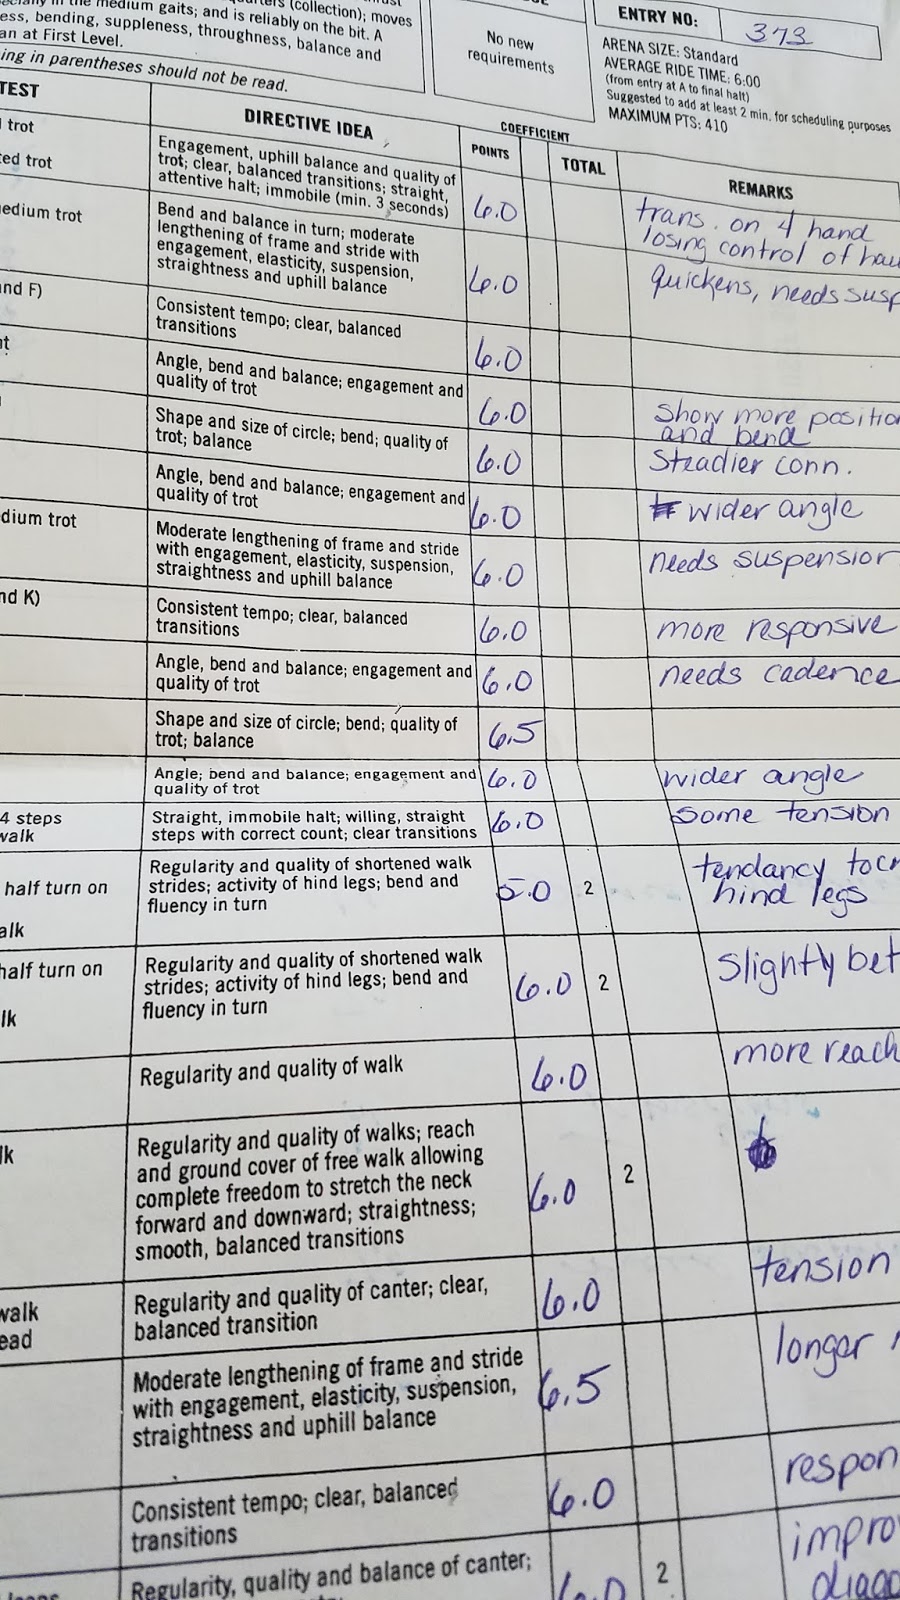 medium gaits; and is reliably on the bit. A
(collection); moves
ess, bending, suppleness, throughness, balance and
an at First Level.
ing in parentheses should not be read.
No new
requirements
ENTRY NO: 373
ARENA SIZE: Standard
AVERAGE RIDE TIME: 6:00
(from entry at A to final halt)
Suggested to add at least 2 min. for scheduling purposes
MAXIMUM PTS: 410
TEST
DIRECTIVE IDEA
COEFFICIENT
POINTS
TOTAL
REMARKS
trot
ted trot
Engagement, uphill balance and quality of
trot; clear, balanced transitions; straight,
attentive halt; immobile (min. 3 seconds)
6.0
trans. on 4 hand
losing control of hau
medium trot
Bend and balance in turn; moderate
lengthening of frame and stride with
engagement, elasticity, suspension,
straightness and uphill balance
6.0
quickens, needs susp
and F)
Consistent tempo; clear, balanced
transitions
6.0
Angle, bend and balance; engagement and
quality of trot
6.0
Show more position
and bend
Shape and size of circle; bend; quality of
trot; balance
6.0
Steadier conn.
Angle, bend and balance; engagement and
quality of trot
6.0
wider angle
dium trot
Moderate lengthening of frame and stride
with engagement, elasticity, suspension,
straightness and uphill balance
6.0
needs suspension
nd K)
Consistent tempo; clear, balanced
transitions
6.0
more responsive
Angle, bend and balance; engagement and
quality of trot
6.0
needs cadence
Shape and size of circle; bend; quality of
trot; balance
6.5
Angle; bend and balance; engagement and
quality of trot
6.0
wider angle
4 steps
walk
Straight, immobile halt; willing, straight
steps with correct count; clear transitions
6.0
some tension
half turn on
alk
Regularity and quality of shortened walk
strides; activity of hind legs; bend and
fluency in turn
5.0
2
tendancy to cr
hind legs
half turn on
lk
Regularity and quality of shortened walk
strides; activity of hind legs; bend and
fluency in turn
6.0
2
Slightly bet
Regularity and quality of walk
6.0
more reach
lk
Regularity and quality of walks; reach
and ground cover of free walk allowing
complete freedom to stretch the neck
forward and downward; straightness;
smooth, balanced transitions
6.0
2
walk
ead
Regularity and quality of canter; clear,
balanced transition
6.0
tension
Moderate lengthening of frame and stride
with engagement, elasticity, suspension,
straightness and uphill balance
6.5
longer
Consistent tempo; clear, balanced
transitions
6.0
respon
Regularity, quality and balance of canter;
6.0
2
impro
diago